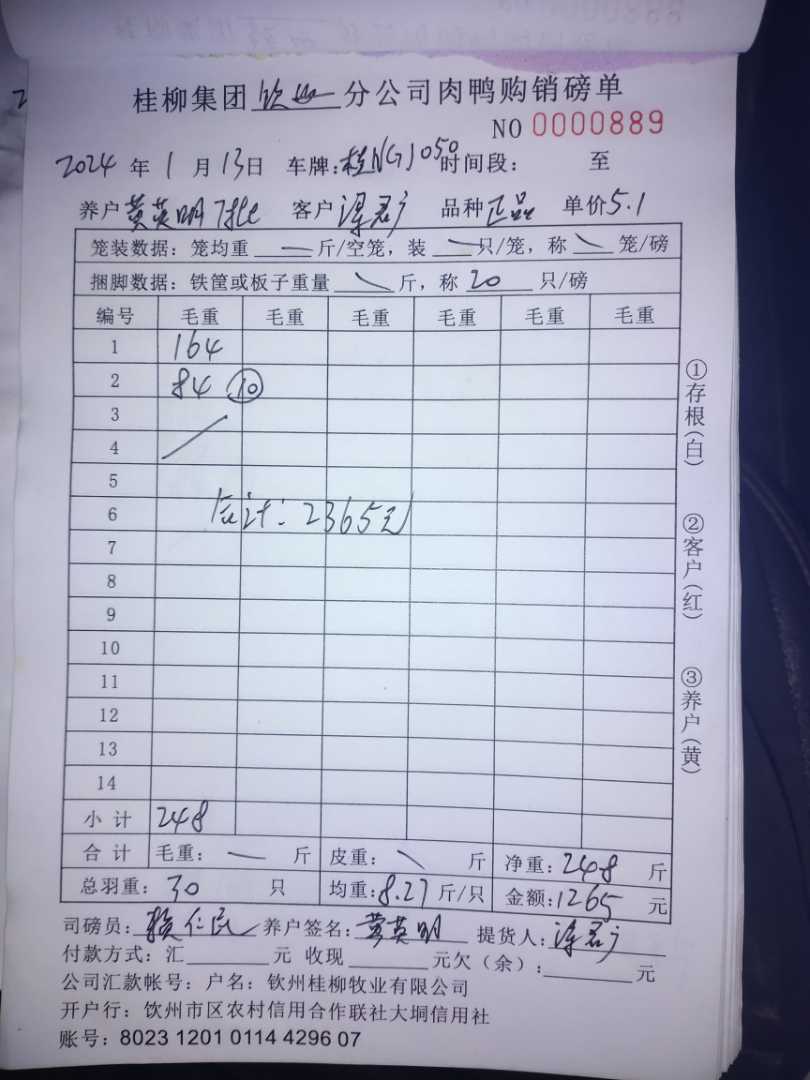 桂柳集团钦州分公司肉鸭购销磅单
NO 0000889
2024年1月13日 车牌:桂NGJ050 时间段: 至
养户 黄英明 客户 品种 正品 单价 5.1
笼装数据: 笼均重 — 斤/空笼, 装 — 只/笼, 称 — 笼/磅
捆脚数据: 铁筐或板子重量 — 斤, 称 20 只/磅
编号 毛重 毛重 毛重 毛重 毛重 毛重
1 164
2 84 ⑩
3
4
5
6 合计: 2365元
7
8
9
10
11
12
13
14
小计 248
合计 毛重: — 斤 皮重: — 斤 净重: 248 斤
总羽重: 30 只 均重: 8.27 斤/只 金额: 1265 元
司磅员: 赖仁民 养户签名: 黄英明 提货人:
付款方式: 汇 元 收现 元欠(余): 元
公司汇款帐号: 户名: 钦州桂柳牧业有限公司
开户行: 钦州市区农村信用合作联社大垌信用社
账号: 8023 1201 0114 4296 07
①存根(白)
②客户(红)
③养户(黄)